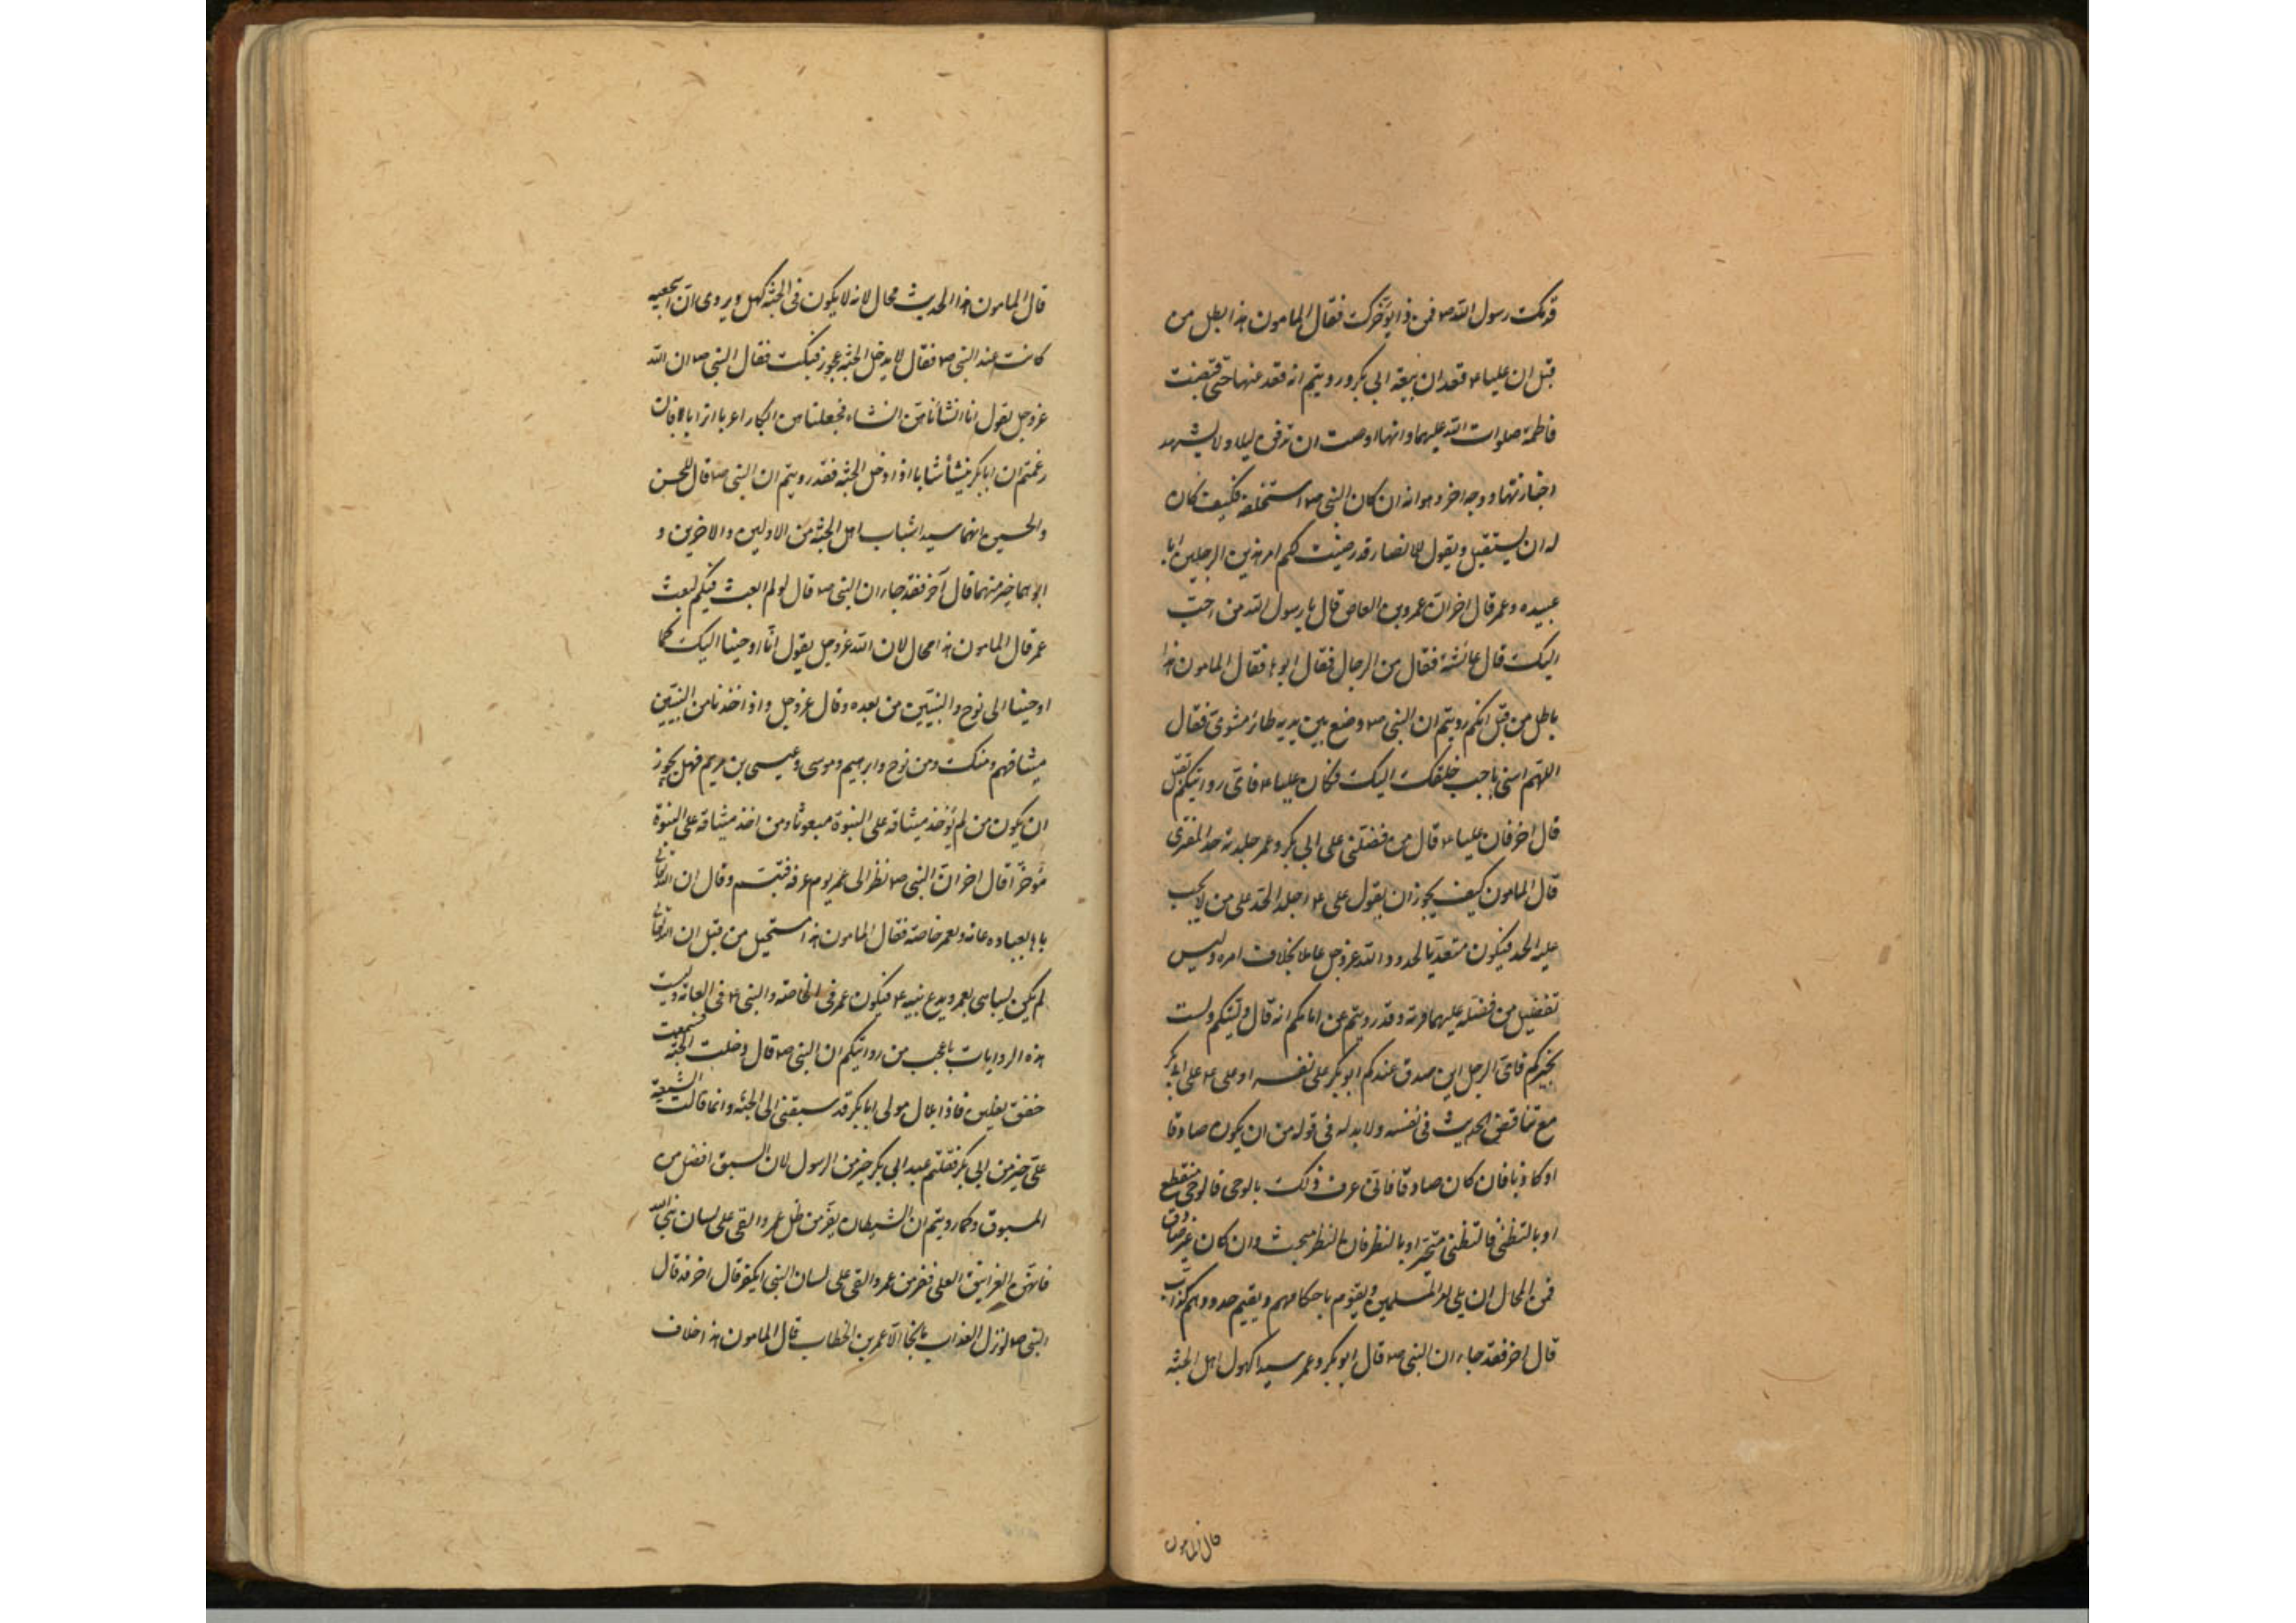 قدمك رسول الله ص فمن ذا يؤخرك فقال المامون هذا باطل من
قبل ان عليا ع قعد ان بيعة ابي بكر ورويتم انه قعد عنها حتى قبضت
فاطمة صلوات الله عليهما وانها اوصت ان تدفن ليلا ولا يشهد
اجنازتها ووجه اخر وهو انه ان كان النبي ص استخلفه فكيف كان
له ان يستقيل ويقول للانصار قد رضيت لكم احد هذين الرجلين ابا
عبيده وعمر قال اخر ان عمرو بن العاص قال يا رسول الله من احب
اليك قال عائشة فقال من الرجال فقال ابوها فقال المامون هذا
باطل من قبل انكم رويتم ان النبي ص وضع بين يديه طائر مشوي فقال
اللهم اتني باحب خلقك اليك فكان عليا ع فاي روايتكم تقبل
قال اخر فان عليا ع قال من فضلني على ابي بكر وعمر جلدته حد المفتري
قال المامون كيف يجوز ان يقول علي ع اجلد الحد على من لا يجب
عليه الحد فيكون متعديا لحدود الله عز وجل عاملا بخلاف امره وليس
تفضيل من فضله عليهما فرية وقد رويتم عن امامكم انه قال وليتكم ولست
بخيركم فاي الرجلين صدق عندكم ابو بكر على نفسه او علي ع على ابي بكر
مع تناقض الحديث في نفسه ولا بد له في قوله من ان يكون صادقا
او كاذبا فان كان صادقا فاني عرف ذلك بالوحي فالوحي منقطع
او بالتظني فالتظني متحير او بالنظر فان النظر مبحث وان كان غير صادق
فمن المحال ان يلي امر المسلمين ويقوم باحكامهم ويقيم حدودهم كذاب
قال اخر فقد جاء ان النبي ص قال ابو بكر وعمر سيدا كهول اهل الجنة
قال المامون
قال المامون هذا الحديث محال لانه لا يكون في الجنة كهل ويروى ان اشجعيه
كانت عند النبي ص فقال لا يدخل الجنة عجوز فبكت فقال النبي ص ان الله
عز وجل يقول انا انشأناهن انشاء فجعلناهن ابكارا عربا اترابا فان
زعمتم ان ابا بكر ينشأ شابا اذا دخل الجنة فقد رويتم ان النبي ص قال للحسن
والحسين انهما سيدا شباب اهل الجنة من الاولين والاخرين و
ابوهما خير منهما قال آخر فقد جاء ان النبي ص قال لو لم ابعث فيكم لبعث
عمر قال المامون هذا محال لان الله عز وجل يقول انا اوحينا اليك كما
اوحينا الى نوح والنبيين من بعده وقال عز وجل واذ اخذنا من النبيين
ميثاقهم ومنك ومن نوح وابرهيم وموسى وعيسى بن مريم فهل يجوز
ان يكون من لم يؤخذ ميثاقه على النبوة مبعوثا ومن اخذ ميثاقه على النبوة
مؤخرا قال اخر ان النبي ص نظر الى عمر يوم عرفه فتبسم وقال ان الله تعالى
باهى بعباده عامة وبعمر خاصة فقال المامون هذا مستحيل من قبل ان الله تعالى
لم يكن ليباهي بعمر ويدع نبيه ع فيكون عمر في الخاصة والنبي ع في العامة وليست
هذه الروايات باعجب من روايتكم ان النبي ص قال دخلت الجنة فسمعت
خفق نعلين فاذا بلال مولى ابا بكر قد سبقني الى الجنة وانما قالت الشيعة
علي خير من ابي بكر فقلتم عبد ابي بكر خير من الرسول لان السابق افضل من
المسبوق وكما رويتم ان الشيطان يفر من ظل عمر والقى على لسان نبي الله
فانهن الغرانيق العلى ففر من عمر والقى على لسان النبي الكفر قال اخر قد قال
النبي ص لو نزل العذاب ما نجا الا عمر بن الخطاب قال المامون هذا خلاف